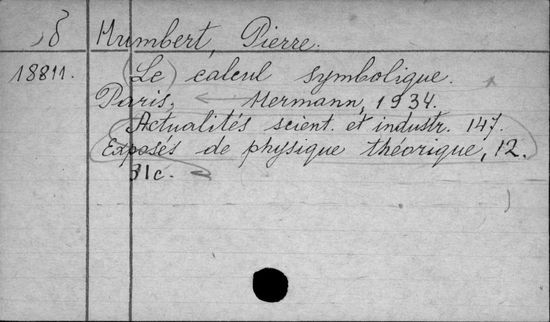 Humbert, Pierre.
18811. (Le) calcul symbolique.
Paris, Hermann, 1934.
Actualités scient. et industr. 147.
Exposés de physique théorique, 12.
31c.